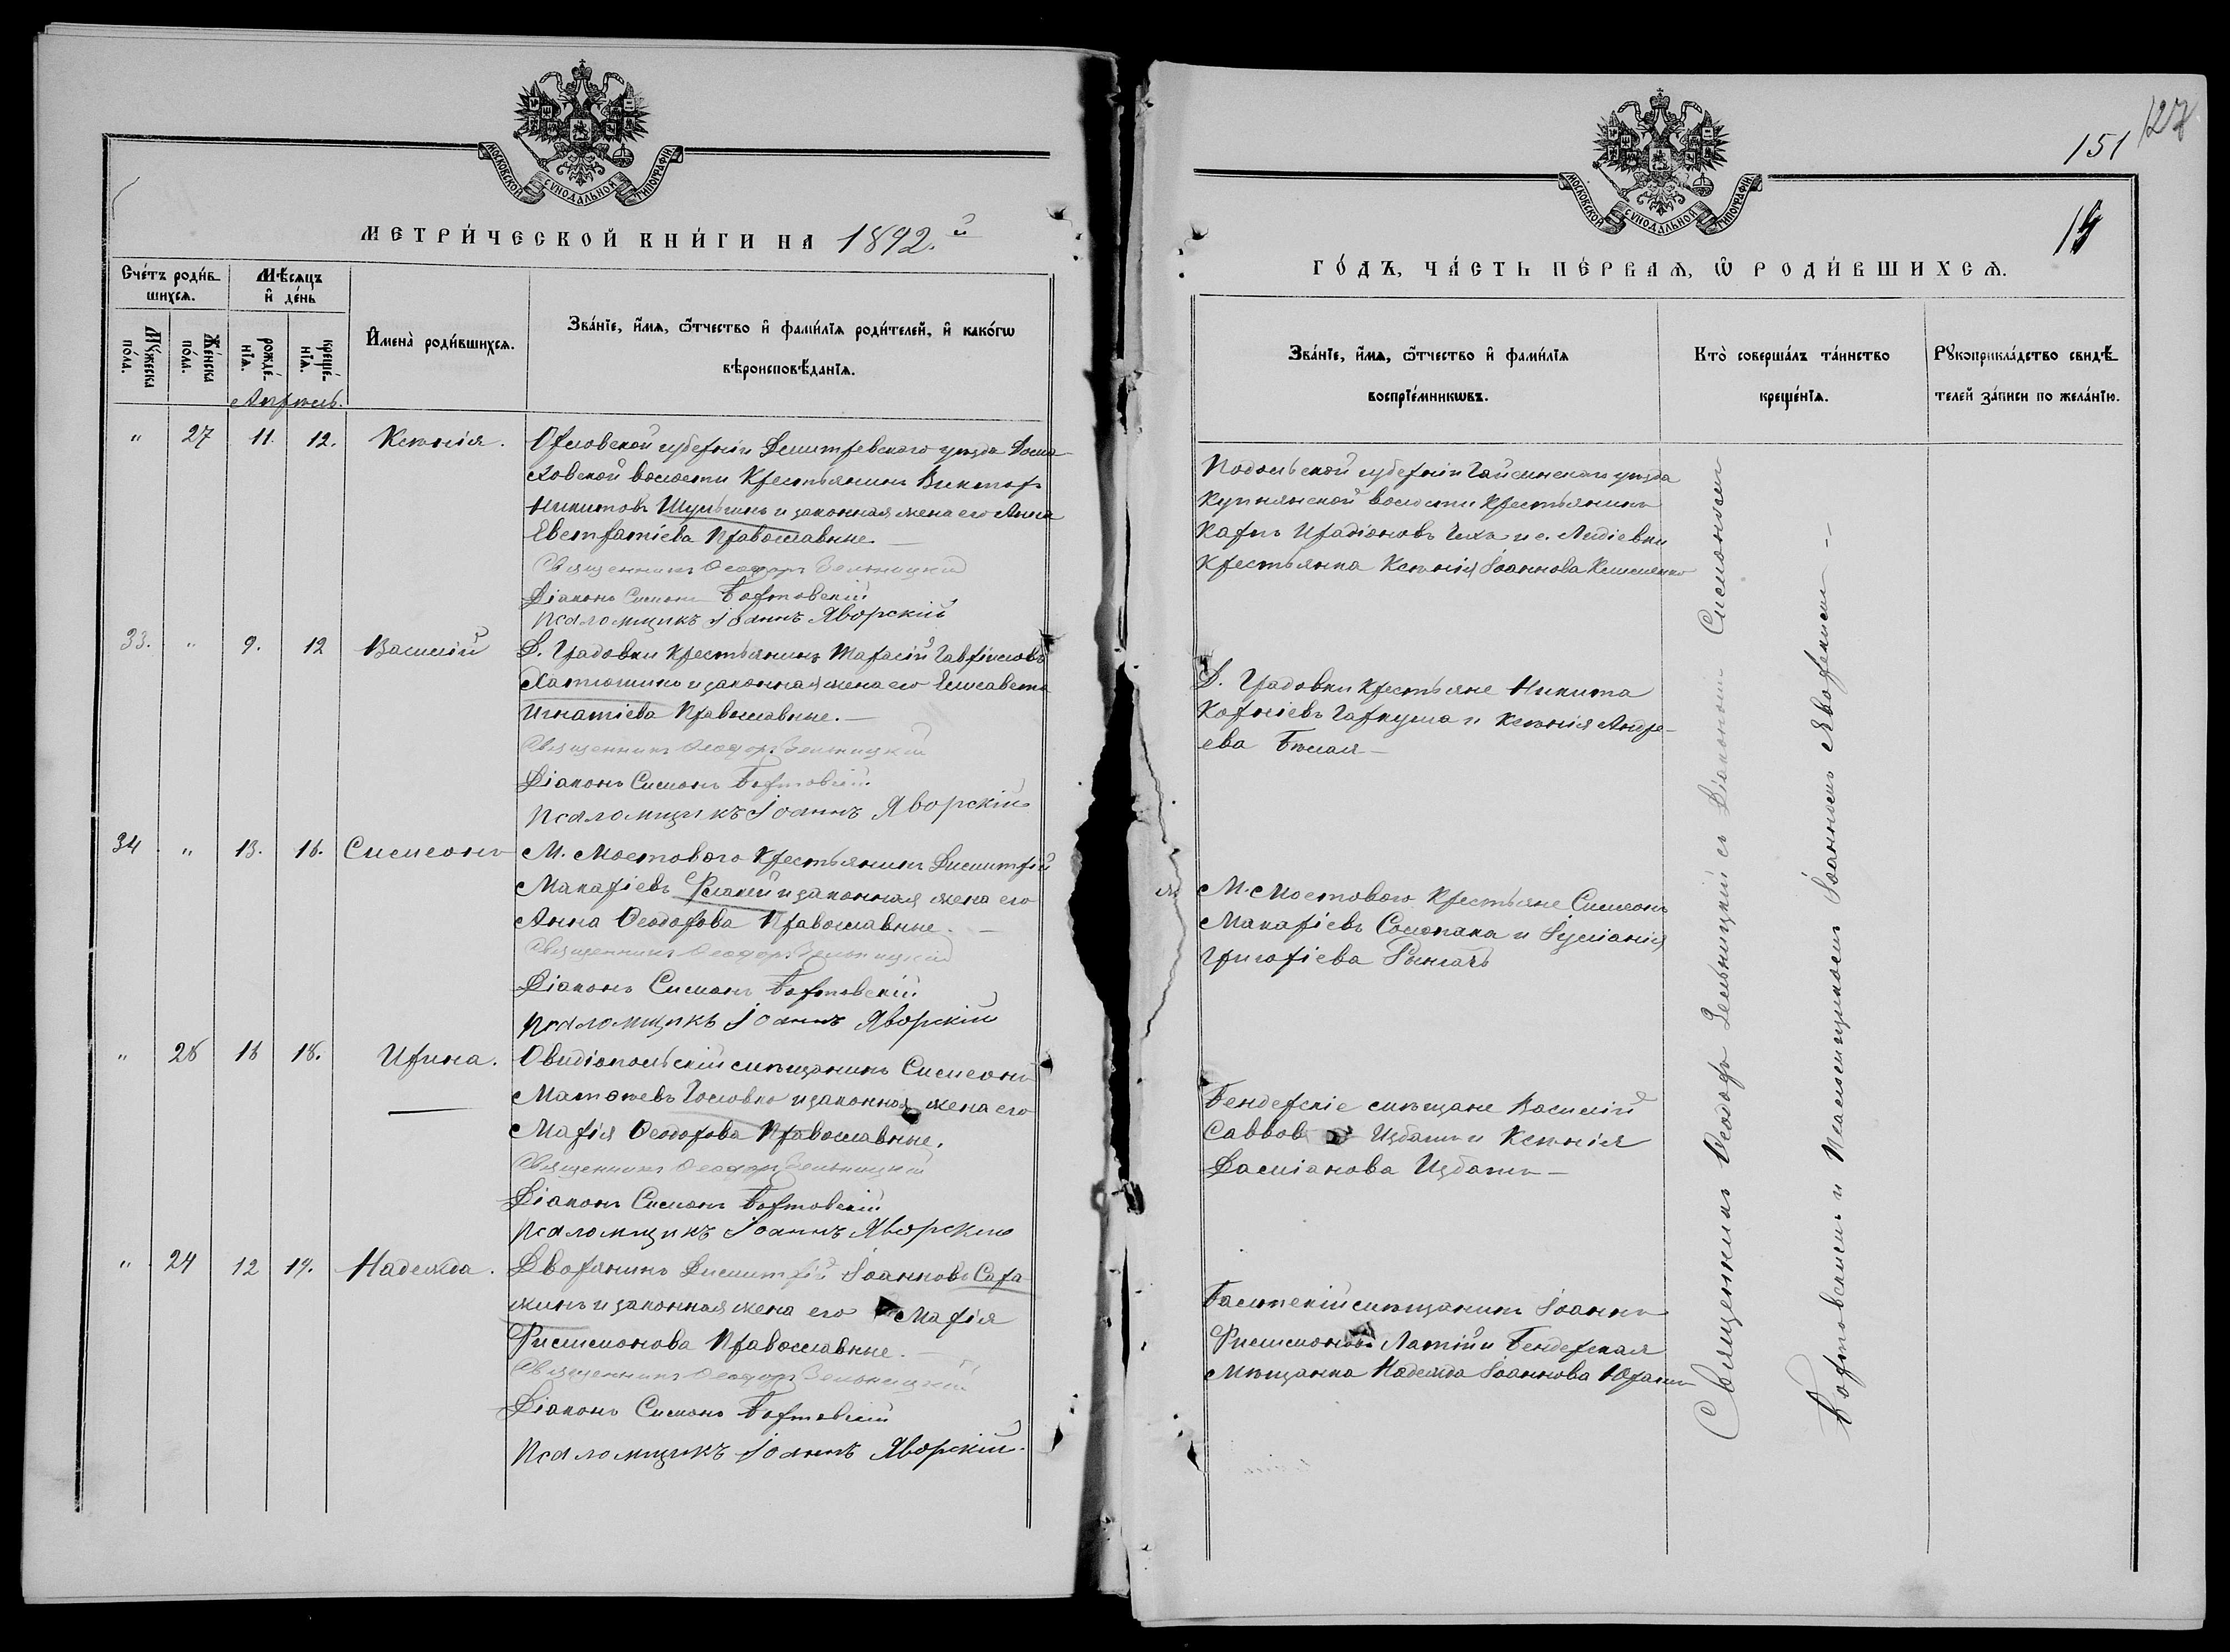 МОСКОВСКОЙ СѴНОДАЛЬНОЙ ТИПОГРАФІИ
МЕТРИ́ЧЕСКОЙ КНИ́ГИ НА 1892.й
Сче́тъ роди́в-
шихсѧ.
Мѣ́сѧцъ
и҆ де́нь
Мꙋ́жеска
по́ла.
Же́нска
по́ла.
рожде́-
нїѧ.
креще́-
нїѧ.
И҆мена̀ роди́вшихсѧ.
Зва́нїе, и҆́мѧ, ѻ҆́тчество и҆ фами́лїѧ роди́телей, и҆ како́гѡ
вѣроисповѣ́данїѧ.
Апрѣль.
" 27 11. 12. Ксенія. Орловской губерніи Дмитревскаго уѣзда Дома-
ховской волости Крестьянинъ Викторъ
Никитовъ Шульгинъ и законная жена его Анна
Евстратіева Православные.—
Священникъ Ѳеодоръ Зельницкій
Діаконъ Симонъ Бортовскій
Псаломщикъ Іоаннъ Яворскій
33. " 9. 12 Василій Д. Градовки Крестьянинъ Тарасій Гавріиловъ
Хатюшинъ и законная жена его Елисавета
Игнатіева Православные.—
Священникъ Ѳеодоръ Зельницкій
Діаконъ Симонъ Бортовскій
Псаломщикъ Іоаннъ Яворскій
34 " 13. 16. Симеонъ М. Мостового Крестьянинъ Димитрій
Макаріевъ и законная жена его
Анна Ѳеодорова Православные.—
Священникъ Ѳеодоръ Зельницкій
Діаконъ Симонъ Бортовскій
Псаломщикъ Іоаннъ Яворскій
" 28 16 18. Ирина. Овидіопольскій мѣщанинъ Симеонъ
Матѳеевъ Головко и законная жена его
Марія Ѳеодорова Православные.
Священникъ Ѳеодоръ Зельницкій
Діаконъ Симонъ Бортовскій
Псаломщикъ Іоаннъ Яворскій
" 24 12 19. Надежда. Дворянинъ Димитрій Іоанновъ Сара-
жинъ и законная жена его Марія
Филимонова Православные.—
Священникъ Ѳеодоръ Зельницкій
Діаконъ Симонъ Бортовскій
Псаломщикъ Іоаннъ Яворскій.
151 127
МОСКОВСКОЙ СѴНОДАЛЬНОЙ ТИПОГРАФІИ
ГО́ДЪ, ЧА́СТЬ ПЕ́РВАѦ, Ѡ҆ РОДИ́ВШИХСѦ.
Зва́нїе, и҆́мѧ, ѻ҆́тчество и҆ фами́лїѧ
воспрїе́мникѡвъ.
Кто̀ соверша́лъ та́инство
креще́нїѧ.
Рꙋкоприкла́дство свидѣ́-
телей за́писи по жела́нїю.
Подольской губерніи Гайсинскаго уѣзда
Купнянской волости Крестьянинъ
Карпъ Иродіоновъ Чехъ и с. Лидіевки
Крестьянка Ксенія Іоаннова Клименко
Д. Градовки Крестьяне Никита
Корніевъ Гаркуша и Ксенія Андре-
ева Бѣлая—
М. Мостового Крестьяне Симеонъ
Макаріевъ Соломаха и Іуліанія
Григоріева
Бендерскіе мѣщане Василій
Саввовъ Избашъ и Ксенія
Даміанова Избашъ—
Балтскій мѣщанинъ Іоаннъ
Филимоновъ Латій и Бендерская
Мѣщанка Надежда Іоаннова
Священникъ Ѳеодоръ Зельницкій съ Діакономъ Симономъ
Бортовскимъ и Псаломщикомъ Іоанномъ Яворскимъ —